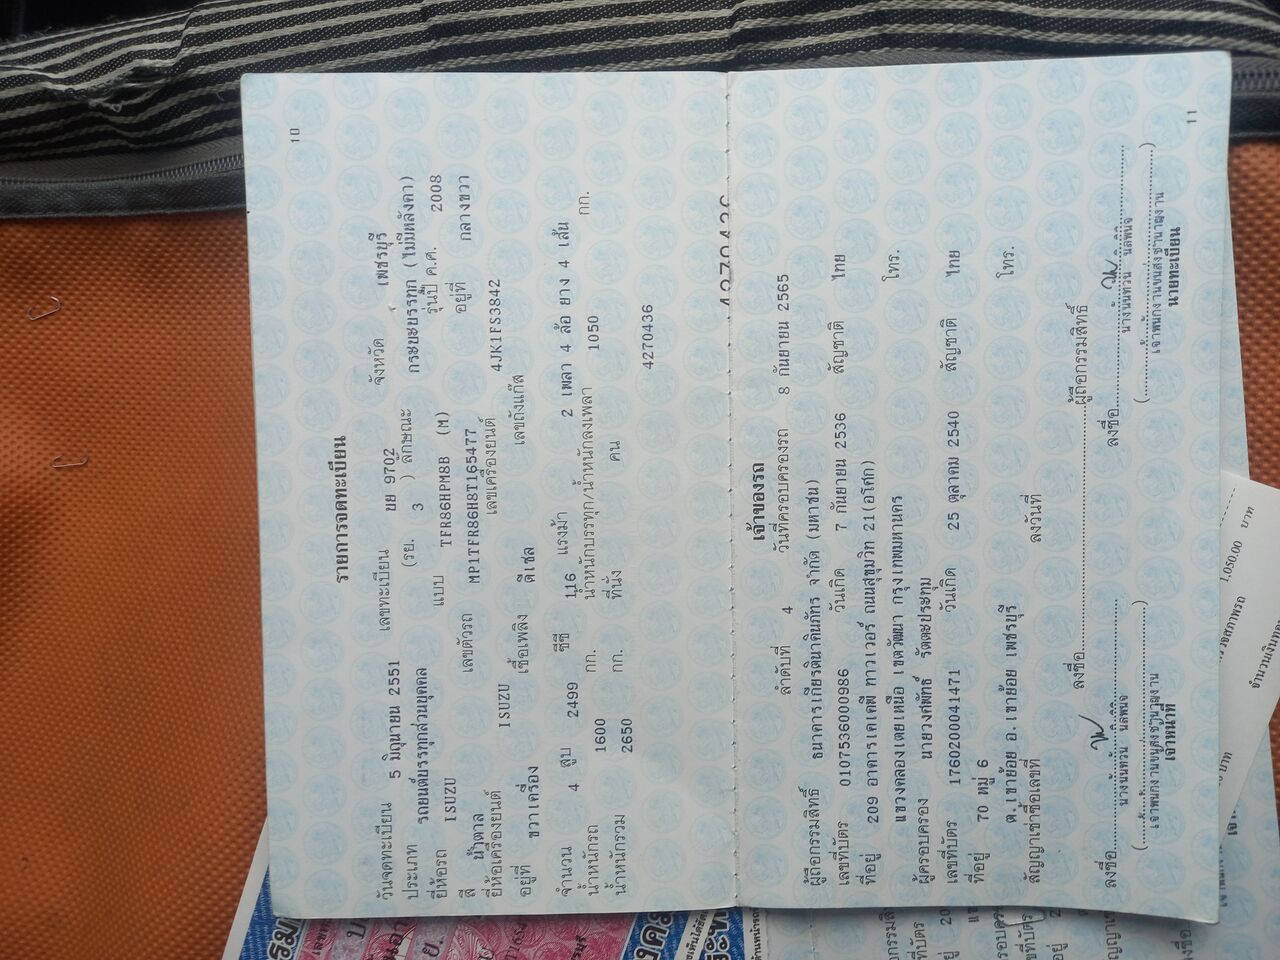 10
รายการจดทะเบียน
วันจดทะเบียน 5 มิถุนายน 2551 เลขทะเบียน ยย 9702 จังหวัด เพชรบุรี
ประเภท รถยนต์บรรทุกส่วนบุคคล (รย. 3 ) ลักษณะ กระบะบรรทุก (ไม่มีหลังคา)
ยี่ห้อรถ ISUZU แบบ TFR86HPM8B (M) รุ่นปี ค.ศ. 2008
สี น้ำตาล เลขตัวรถ MP1TFR86H8T165477 อยู่ที่ กลางขวา
ยี่ห้อเครื่องยนต์ ISUZU เลขเครื่องยนต์ 4JK1FS3842
อยู่ที่ ขวาเครื่อง เชื้อเพลิง ดีเซล เลขถังแก๊ส
จำนวน 4 สูบ 2499 ซีซี 116 แรงม้า 2 เพลา 4 ล้อ ยาง 4 เส้น
น้ำหนักรถ 1600 กก. น้ำหนักบรรทุก/น้ำหนักลงเพลา 1050 กก.
น้ำหนักรวม 2650 กก. ที่นั่ง คน
4270436
4270436
เจ้าของรถ
ลำดับที่ 4 วันที่ครอบครองรถ 8 กันยายน 2565
ผู้ถือกรรมสิทธิ์ ธนาคารเกียรตินาคินภัทร จำกัด (มหาชน)
เลขที่บัตร 0107536000986 วันเกิด 7 กันยายน 2536 สัญชาติ ไทย
ที่อยู่ 209 อาคารเคเคพี ทาวเวอร์ ถนนสุขุมวิท 21(อโศก)
แขวงคลองเตยเหนือ เขตวัฒนา กรุงเทพมหานคร โทร.
ผู้ครอบครอง นายวงศ์พัทธ์ รัตตะประทุม
เลขที่บัตร 1760200041471 วันเกิด 25 ตุลาคม 2540 สัญชาติ ไทย
ที่อยู่ 70 หมู่ 6
ต.เขาย้อย อ.เขาย้อย เพชรบุรี โทร.
สัญญาเช่าซื้อเลขที่ ลงวันที่
ลงชื่อ ผู้ถือกรรมสิทธิ์
ลงชื่อ ลงชื่อ
เจ้าพนักงานขนส่งชำนาญงาน เจ้าพนักงานขนส่งชำนาญงาน
เจ้าหน้าที่ นายทะเบียน
11
1,050.00 บาท
จำนวนเงิน